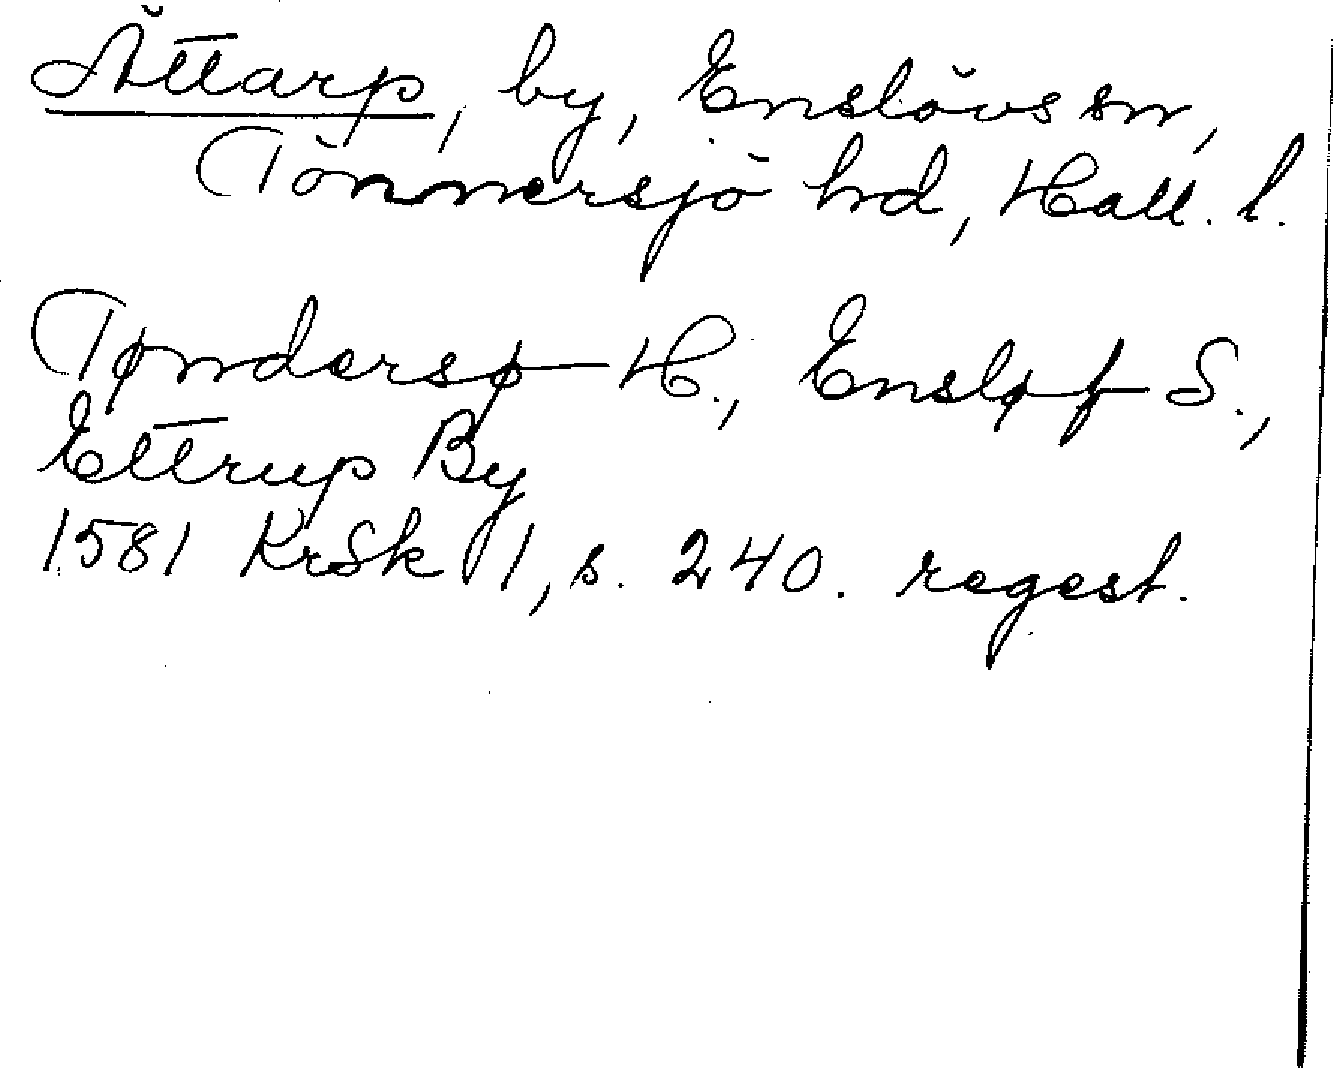 Ättarp, by, Enslövs sn,
Tönnersjö hd, Hall. l.
Tøndersø H., Ensløf S.,
Ettrup By
1581 KrSk 1, s. 240. regest.